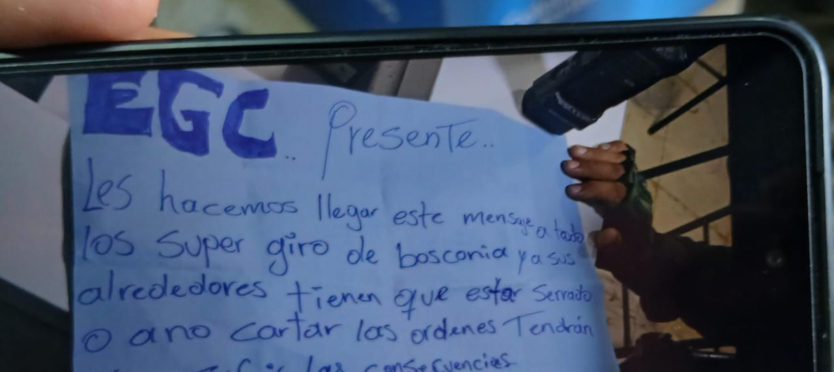 EGC.. Presente..
Les hacemos llegar este mensaje a todo
los super giro de bosconia y a sus
alrededores tienen que estar serrado
o a no cartar las ordenes Tendrán
las consecuencias